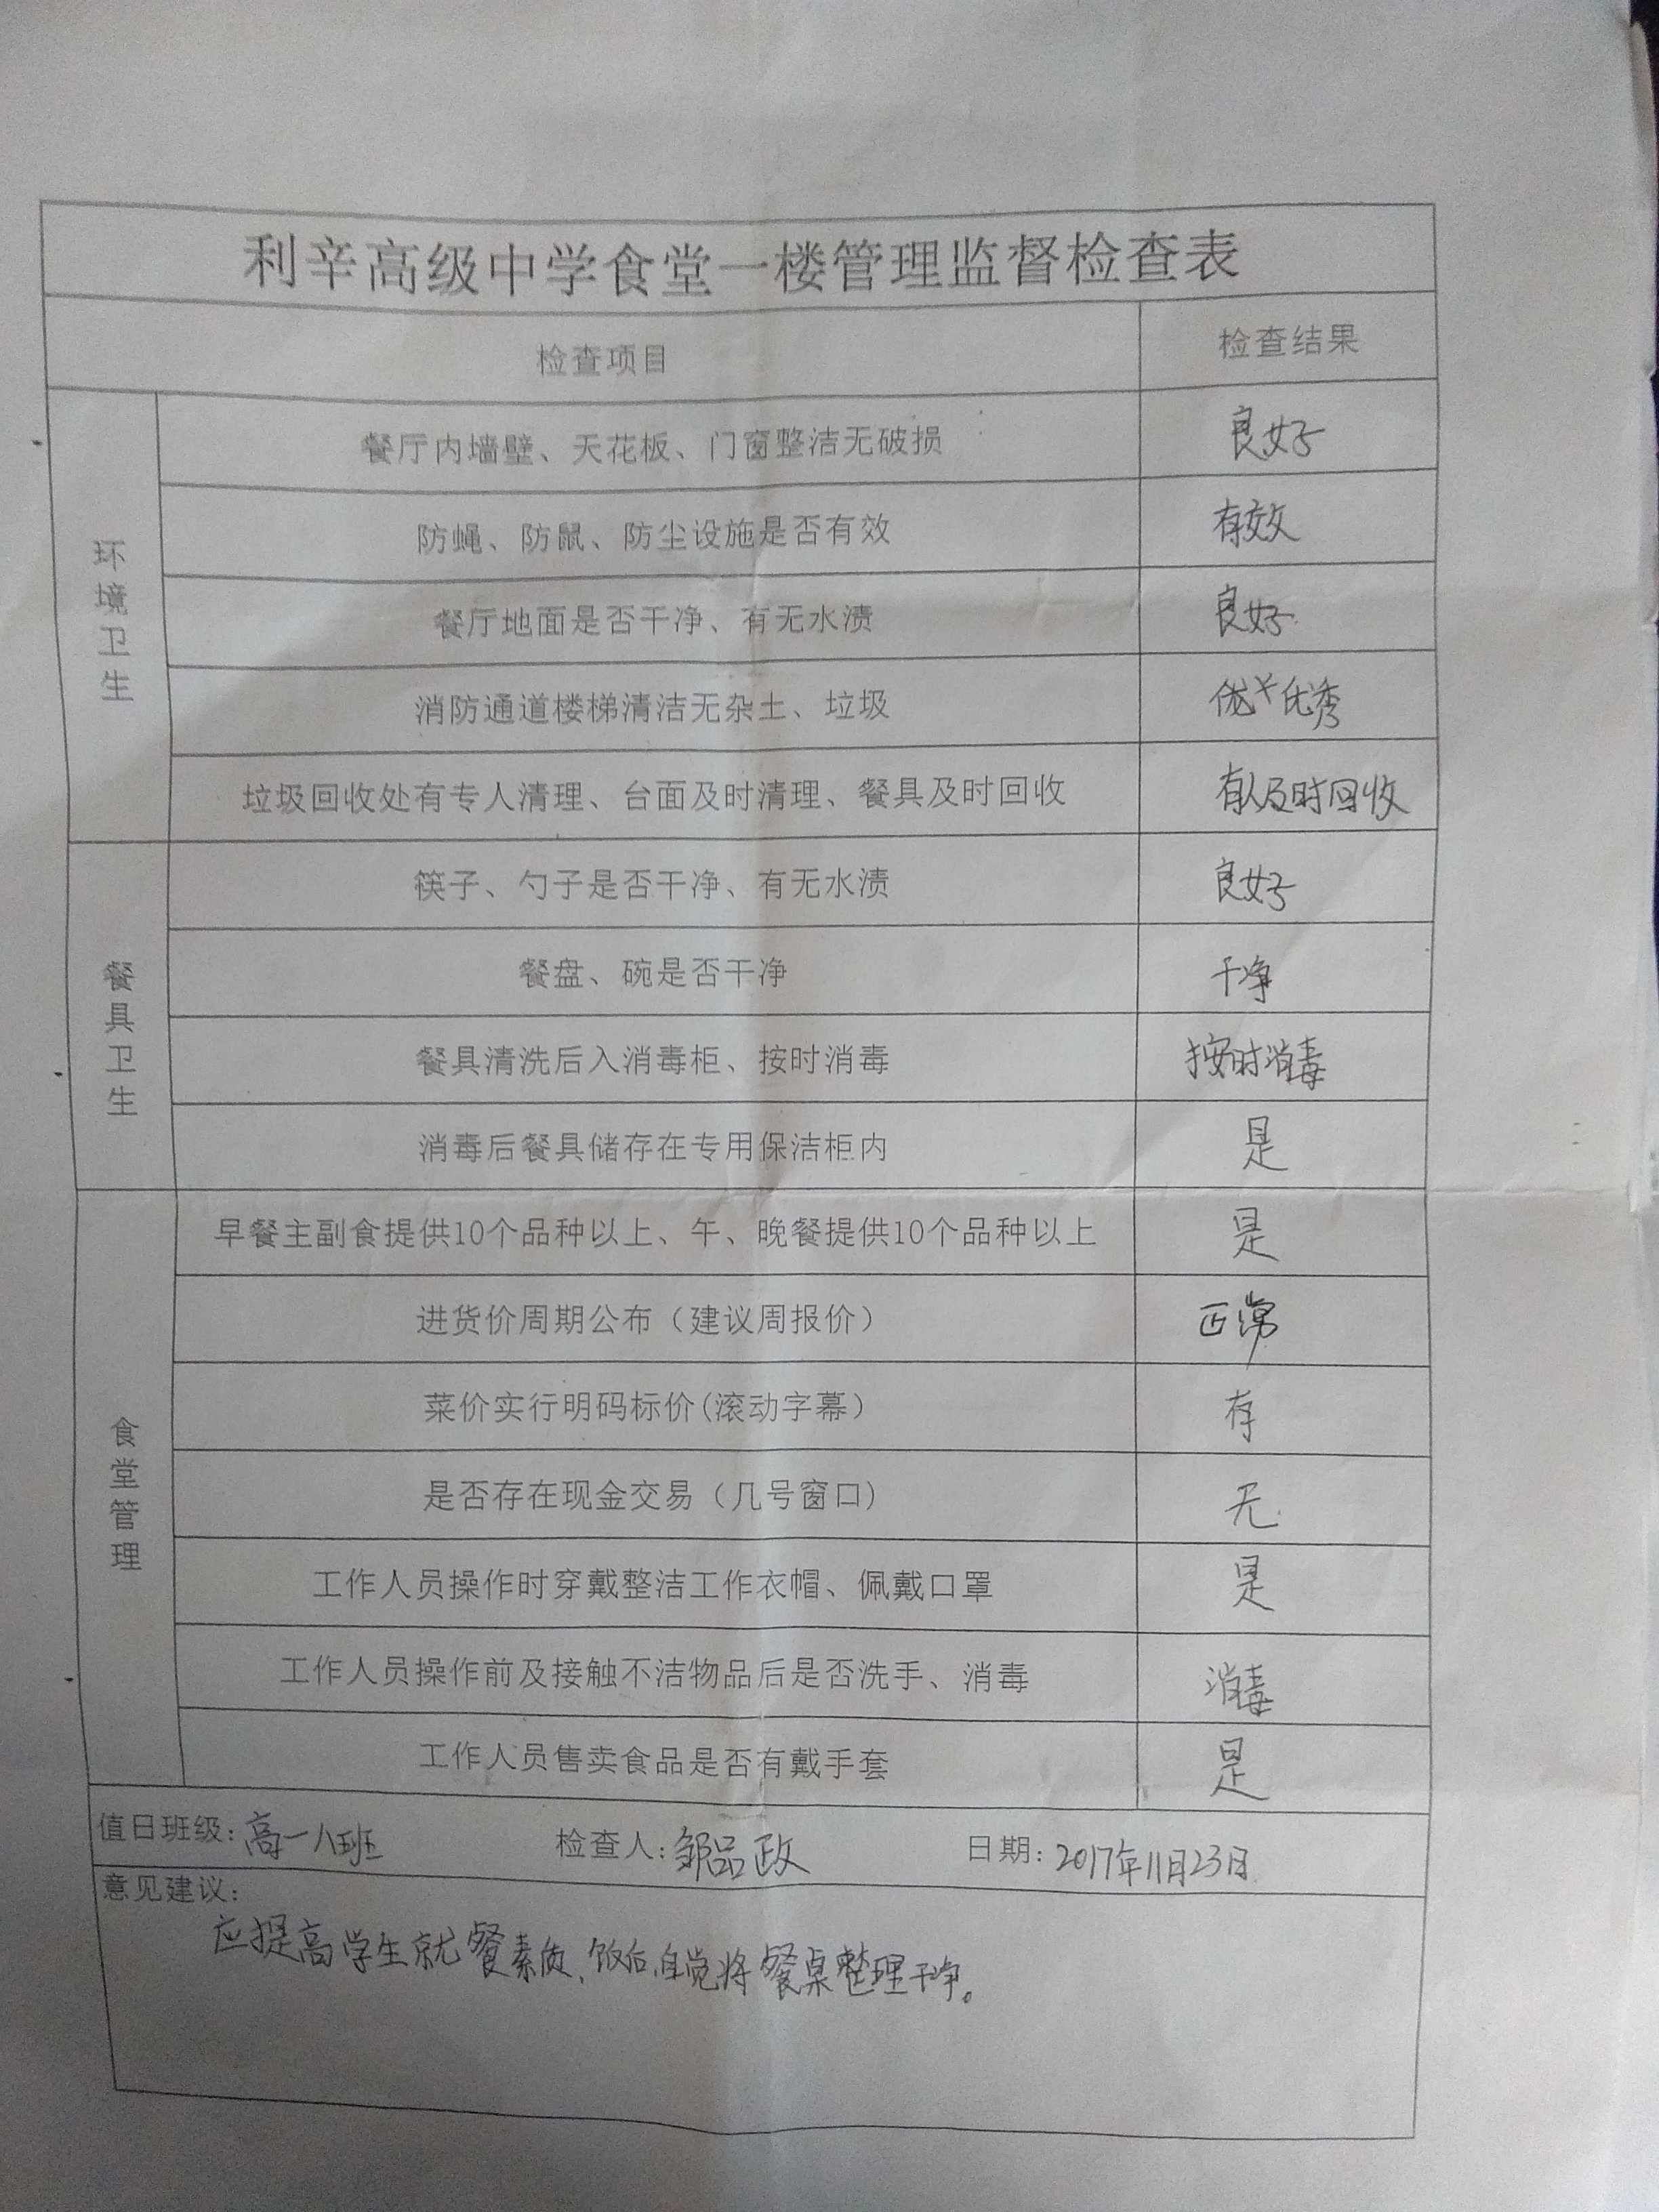 利辛高级中学食堂一楼管理监督检查表
检查项目 检查结果
环境卫生
餐厅内墙壁、天花板、门窗整洁无破损 良好
防蝇、防鼠、防尘设施是否有效 有效
餐厅地面是否干净、有无水渍 良好
消防通道楼梯清洁无杂土、垃圾 优秀
垃圾回收处有专人清理、台面及时清理、餐具及时回收 有人及时回收
餐具卫生
筷子、勺子是否干净、有无水渍 良好
餐盘、碗是否干净 干净
餐具清洗后入消毒柜、按时消毒 按时消毒
消毒后餐具储存在专用保洁柜内 是
食堂管理
早餐主副食提供10个品种以上、午、晚餐提供10个品种以上 是
进货价周期公布（建议周报价） 正常
菜价实行明码标价(滚动字幕） 存
是否存在现金交易（几号窗口） 无
工作人员操作时穿戴整洁工作衣帽、佩戴口罩 是
工作人员操作前及接触不洁物品后是否洗手、消毒 消毒
工作人员售卖食品是否有戴手套 是
值日班级：高一八班 检查人：邹品政 日期：2017年11月23日
意见建议：
应提高学生就餐素质，饭后自觉将餐桌整理干净。